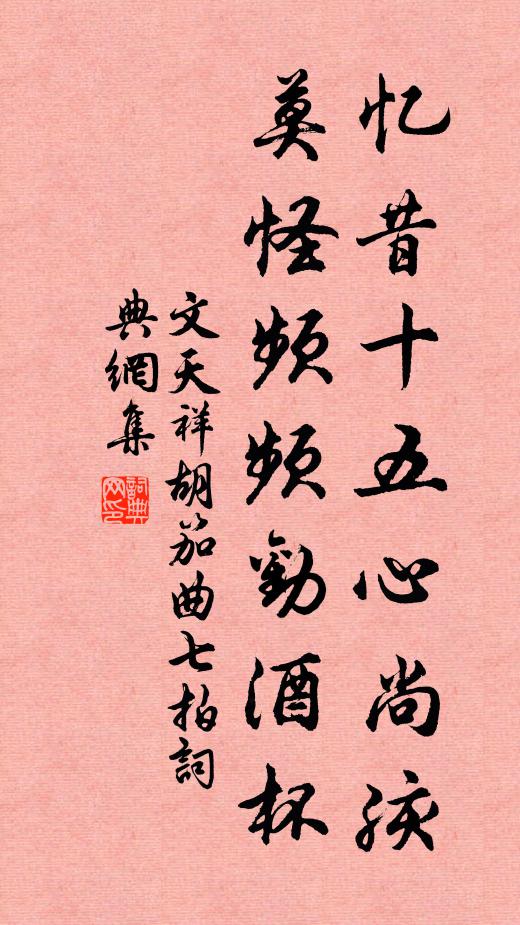 忆昔十五心尚孩
莫怪频频勸酒杯
文天祥胡笳曲七拍詞
典網集
詞典网印